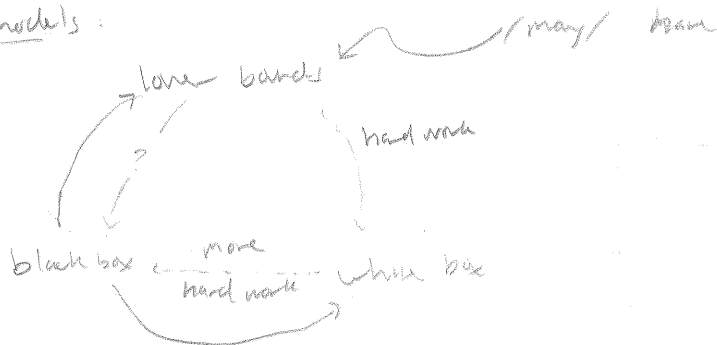 models :
/ many /
lower bounds
hard work
?
black box
more
hard work
white box